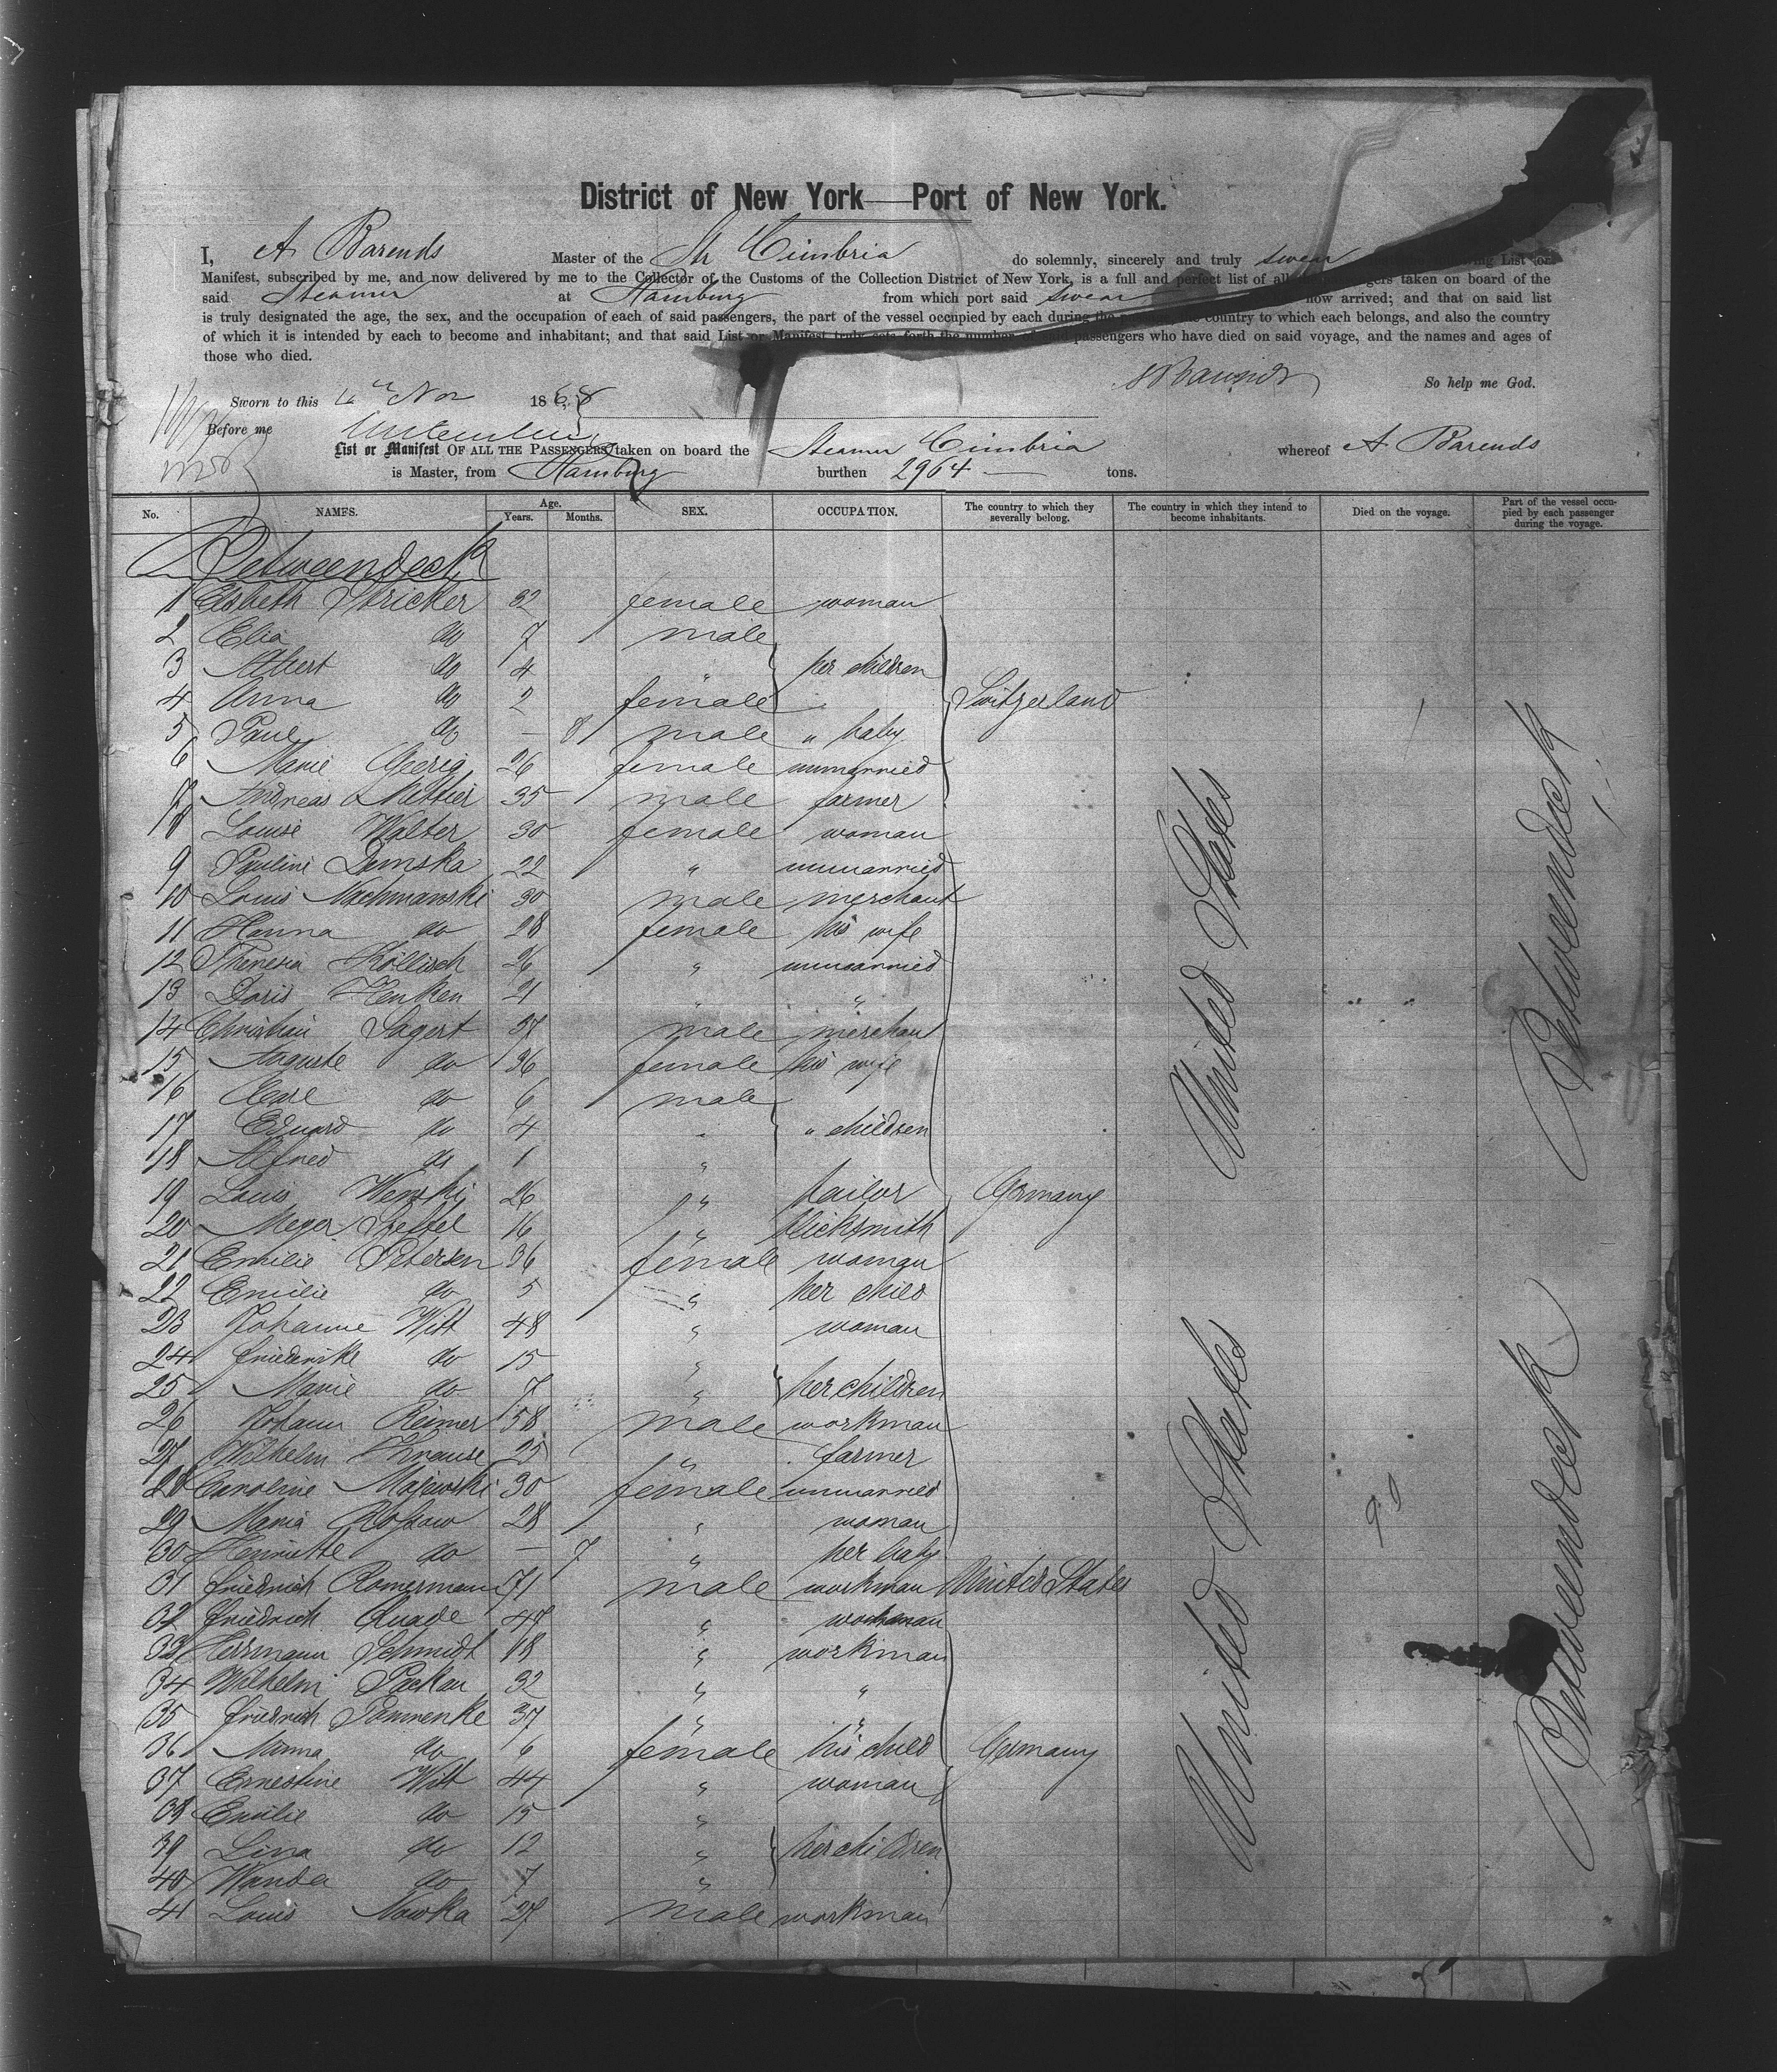 District of New York—Port of New York.
I, A Barends Master of the Str Cimbria do solemnly, sincerely and truly swear List or
Manifest, subscribed by me, and now delivered by me to the Collector of the Customs of the Collection District of New York, is a full and perfect list of all taken on board of the
said Steamer at Hamburg from which port said swear now arrived; and that on said list
is truly designated the age, the sex, and the occupation of each of said passengers, the part of the vessel occupied by each during the country to which each belongs, and also the country
of which it is intended by each to become and inhabitant; and that said List or Manifest truly sets forth the number passengers who have died on said voyage, and the names and ages of
those who died.
A Barends So help me God.
Sworn to this Nov 1868
Before me
List or Manifest OF ALL THE PASSENGERS taken on board the Steamer Cimbria whereof A Barends
is Master, from Hamburg burthen 2964 tons.
No. NAMES. Age. Years. Months. SEX. OCCUPATION. The country to which they severally belong. The country in which they intend to become inhabitants. Died on the voyage. Part of the vessel occupied by each passenger during the voyage.
Betweendeck
1 Elsbeth Stricker 32 female woman
2 Elia do 7 male
3 Albert do 4 " her children
4 Anna do 2 female Switzerland
5 Paul do — 8 male " baby
6 Marie Gerig 26 female unmarried
7 Andreas 35 male farmer
8 Louise Walter 30 female woman
9 Pauline Demska 22 " unmarried
10 Louis Nachmanski 30 male merchant
11 Hanna do 28 female his wife
12 Theresia Köllisch 26 " unmarried
13 Doris Henken 21 " "
14 Christian Sagert 37 male merchant
15 Auguste do 36 female his wife
16 Carl do 6 male
17 Eduard do 4 " " children
18 Alfred do 1 "
19 Louis Wenski 26 " tailor Germany
20 Meyer Steffel 16 " blicksmith
21 Emilie Petersen 36 female woman
22 Emilie do 5 " her child
23 Johanne Witt 48 " woman
24 Friederike do 15 "
25 Marie do 7 " her children
26 Johann Reimer 58 male workman
27 Wilhelm Krause 25 " farmer
28 Caroline Majewski 30 female unmarried
29 Maria Rossow 28 " woman
30 Henriette do — 7 " her baby
31 Friedrich Romermann 71 male workman United States
32 Friedrich Quade 47 "
33 Herrmann Schmidt 18 " workman
34 Wilhelm Packau 32 " "
35 Friedrich Pommenke 37 " "
36 Minna do 6 female his child Germany
37 Ernestine Witt 44 " woman
38 Emilie do 15 "
39 Lina do 12 " her children
40 Wanda do 7 "
41 Louis Nowka 27 male workman
United States
United States
Betweendeck
Betweendeck